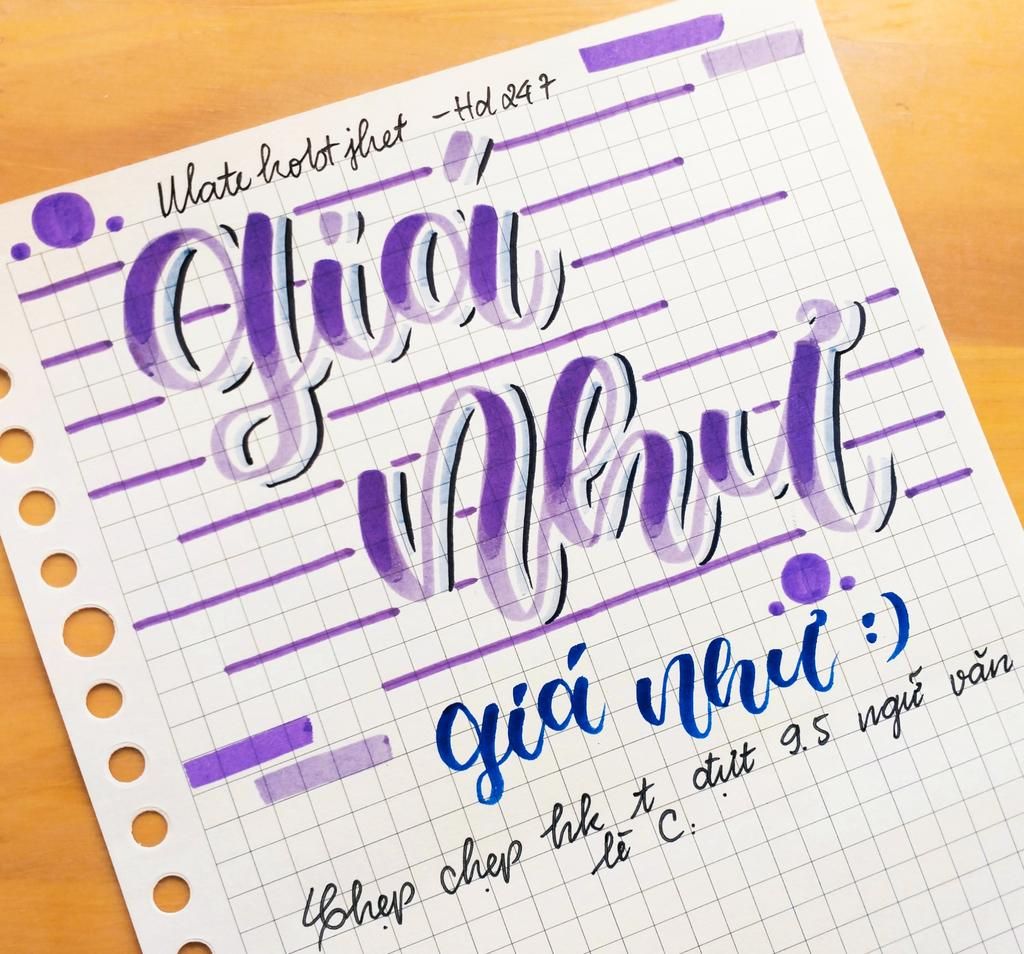 Ulatehobtjhet - Hd247
Giá
Như
giá như :)
Chẹp chẹp hk t đụt 9.5 ngữ văn
lẽ C: